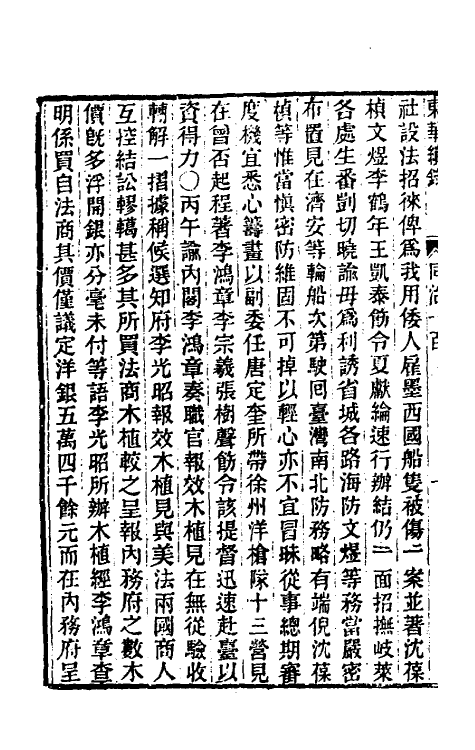 東華續錄 同治一百
社設法招徠俾爲我用倭人雇墨西國船隻被傷一案並著沈葆
楨文煜李鶴年王凱泰飭令夏獻綸速行辦結仍一面招撫岐萊
各處生番剴切曉諭毋爲利誘省城各路海防文煜等務當嚴密
布置見在濟安等輪船次第駛回臺灣南北防務略有端倪沈葆
楨等惟當愼密防維固不可掉以輕心亦不宜冒昧從事總期審
度機宜悉心籌畫以副委任唐定奎所帶徐州洋槍隊十三營見
在曾否起程著李鴻章李宗羲張樹聲飭令該提督迅速赴臺以
資得力〇丙午諭內閣李鴻章奏職官報效木植見在無從驗收
轉解一摺據稱候選知府李光昭報效木植見與美法兩國商人
互控結訟轇轕甚多其所買法商木植較之呈報內務府之數木
價旣多浮開銀亦分毫未付等語李光昭所辦木植經李鴻章查
明係買自法商其價僅議定洋銀五萬四千餘元而在內務府呈